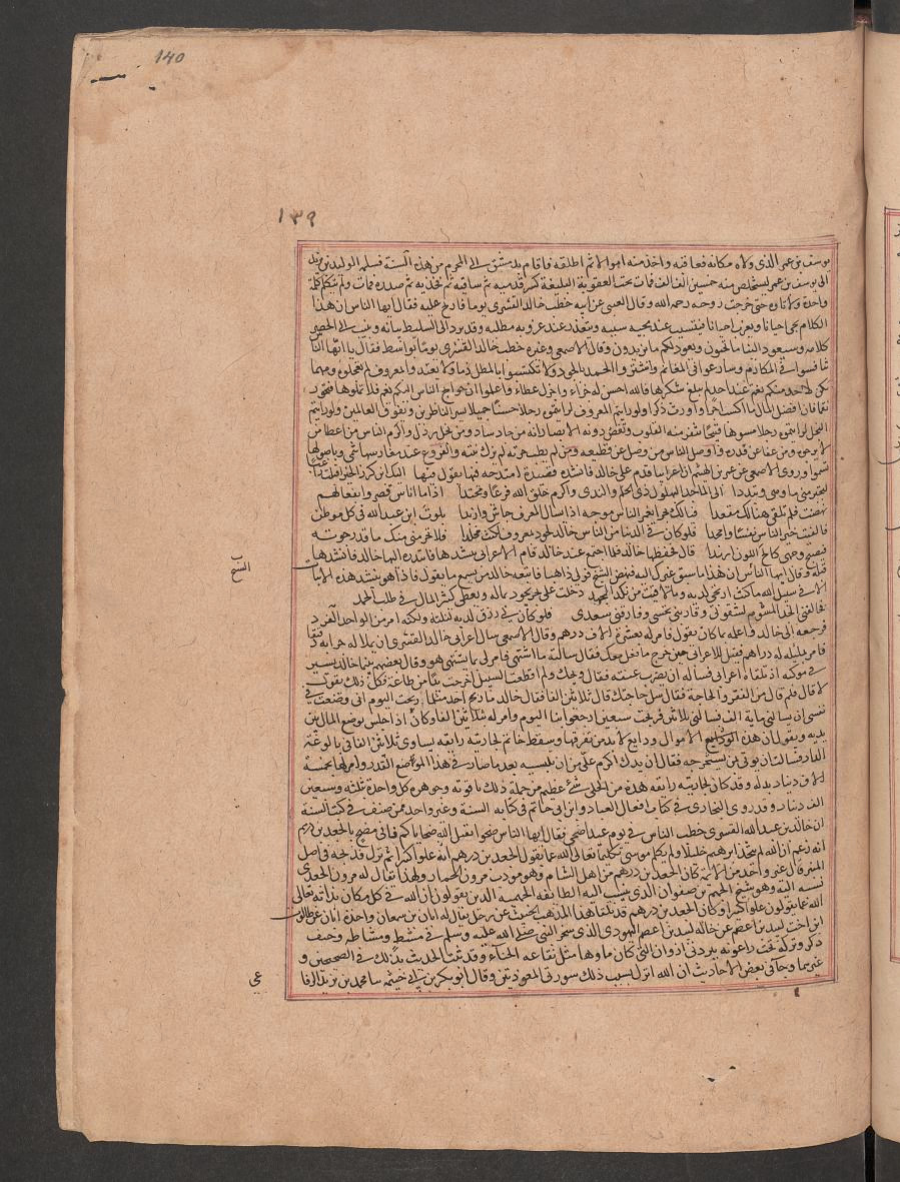 140
١٣٩
يوسف بن عمر الذى ولاه مكانه فعاقبه واخذ منه اموالا ثم اطلقه فاقام بدمشق الى المحرم من هذه السنة فسلمه الوليد بن يزيد
الى يوسف بن عمر ليستخلص منه خمسين الف الف فمات تحت العقوبة البليغة كسر قدميه ثم ساقيه ثم فخذيه ثم صدره فمات ولم يتكلم كلمة
واحدة ولا تاوه حتى خرجت روحه رحمه الله وقال العتبى عن ابيه خطب خالد القسرى يوما فارتج عليه فقال ايها الناس ان هذا
الكلام يجى احيانا ويعزب احيانا فيتسبب عند مجيه سببه ويتعذر عند عزوبه مطلبه وقد يرد الى السليط بيانه وينيب الى الحصر
كلامه وسيعود الينا ما تحبون ويعود لكم ما تريدون وقال الاصمعى وغيره خطب خالد القسرى يوما بواسط فقال يا ايها الناس
تنافسوا فى المكارم وسارعوا فى المغانم واشتروا الحمد بالجود ولا تكتسبوا بالمطل ذما ولا تعتدوا بمعروف لم تعجلوه ومهما
يكن لاحد منكم نعمة عند احد لم يبلغ شكرها فالله احسن له جزاء واجزل عطاء واعلموا ان حوايج الناس اليكم نعم فلا تملوها فتحور
نقما فان افضل المال ما اكسب اجرا واورث ذكرا ولو رايتم المعروف لرايتموه رجلا حسنا جميلا يسر الناظرين ويفوق العالمين ولو رايتم
البخل لرايتموه رجلا مشوها قبيحا تنفر منه القلوب وتغض دونه الابصار انه من جاد ساد ومن بخل رذل واكرم الناس من اعطا من
لا يرجوه ومن عفا عن قدرة واوصل الناس من وصل عن قطيعة ومن لم يطب حرثه لم يزك نبته والفروع عند مغارسها تنمى وباصولها
تسموا وروى الاصمعى عن عمر بن الهيثم ان اعرابيا قدم على خالد فانشده قصيدة امتدحه فيها يقول فيها اليك ابن كرز الخير اقبلت راغبا
لتجبر منى ما وهى وتبددا الى الماجد البهلول ذى الحلم والندى واكرم خلق الله فرعا ومحتدا اذا ما اناس قصروا بفعالهم
نهضت فلم تلقى هنالك مقعدا فيا لك بحرا يغمر الناس موجه اذا يسال المعروف جاش وازبدا بلوت ابن عبد الله فى كل موطن
فالفيت خير الناس نفسا وامجدا فلو كان فى الدنيا من الناس خالد لجود بمعروف لكنت مخلدا فلا تحرمنى منك ما قد رجوته
فيصبح وجهى كالح اللون اربدا قال فحفظها خالد فلما اجتمع عند خالد قام الاعرابى ينشدها فابتدره اليها خالد فانشدها
قبله وقال ايها الشيخ ان هذا ما سبق غيرك اليه فنهض الشيخ فولى ذاهبا فاتبعه خالد من يسمع ما يقول فاذا هو ينشد هذه الابيات
الا فى سبيل الله ما كنت ارتجى لديه وما لاقيت من نكد الجهد دخلت على بحر يجود بماله ويعطى كثير المال فى طلب الحمد
فخالفنى الجد المشوم لشقوتى وقاربنى نحسى وفارقنى سعدى فلو كان لى رزق لديه لنلته ولكنه امر من الواحد الفرد
فرجعه الى خالد واعلمه بما كان يقول فامر له بعشرة الاف درهم وقال الاصمعى سال اعرابى خالد القسرى ان يملا له جرابه دقيقا
فامر بمليه له دراهم فقيل للاعرابى حين خرج ما فعل معك فقال سالته ما اشتهى فامر لى بما يشتهى هو وقال بعضهم بينما خالد يسير
فى موكبه اذ تلقاه اعرابى فساله ان يضرب عنقه فقال ويحك ولم اقطعت السبيل اخرجت يدا من طاعة فكل ذلك يقول
لا قال فلم قال من الفقر والحاجة فقال سل حاجتك قال ثلاثين الفا فقال خالد ما ربح احد مثلما ربحت اليوم انى وضعت فى
نفسى ان يسالنى ماية الف فسالنى ثلاثين فربحت سبعين ارجعوا بنا اليوم وامر له بثلاثين الفا وكان اذا جلس يوضع المال بين
يديه ويقول ان هذه الاموال ودايع لا بد من تفرقتها وسقط خاتم لجاريته رايقة يساوى ثلاثين الفا فى بالوعة
الدار فسالت ان يوتى بمن يستخرجه فقال ان يدك اكرم على من ان تلبسيه بعد ما صار فى هذا الموضع القذر وامر لها بخمسة
الاف دينار بدله وقد كان لجاريته رايقة هذه من الحلى شى عظيم من جملة ذلك ياقوتة وجوهرة كل واحدة بثلثة وسبعين
الف دينار وقد روى البخارى فى كتاب افعال العباد وابن ابى حاتم فى كتابه السنة وغير واحد ممن صنف فى كتب السنة
ان خالد بن عبد الله القسرى خطب الناس فى يوم عيد اضحى فقال ايها الناس ضحوا تقبل الله ضحاياكم فانى مضح بالجعد بن درهم
انه زعم ان الله لم يتخذ ابرهيم خليلا ولم يكلم موسى تكليما تعالى الله عما يقول الجعد بن درهم علوا كبيرا ثم نزل فذبحه فى اصل
المنبر قال غير واحد من الائمة كان الجعد بن درهم من اهل الشام وهو مودب مرون الحمار ولهذا يقال له مرون الجعدى
نسبة اليه وهو شيخ الجهم بن صفوان الذى ينسب اليه الطائفة الجهمية الذين يقولون ان الله فى كل مكان بذاته تعالى
الله عما يقولون علوا كبيرا وكان الجعد بن درهم قد تلقا هذا المذهب الخبيث عن رجل يقال له ابان بن سمعان واخذه ابان عن طالوت
ابن اخت لبيد بن اعصم عن خاله لبيد بن اعصم اليهودى الذى سحر النبى صلى الله عليه وسلم فى مشط ومشاطة وجف
ذكر وتركه تحت راعوفة ببير ذى اروان التى كان ماوها مثل نقاعة الحناء وقد ثبت الحديث بذلك فى الصحيحين و
غيرهما وجا فى بعض الاحاديث ان الله انزل بسبب ذلك سورتى المعوذتين وقال ابو بكر بن ابى خيثمة سا محمد بن يزيد الرفا
الشيخ
عى